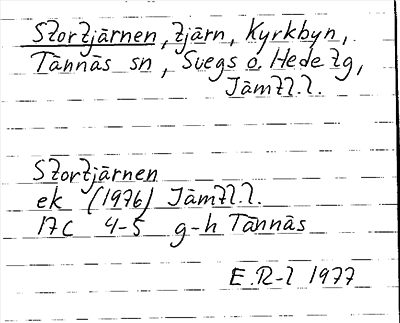 Stortjärnen, tjärn, Kyrkbyn,
Tännäs sn, Svegs o. Hede tg,
Jämtl.l.
Stortjärnen
ek (1976) Jämtl.l.
17C 4-5 g-h Tännäs
E.R-l 1977